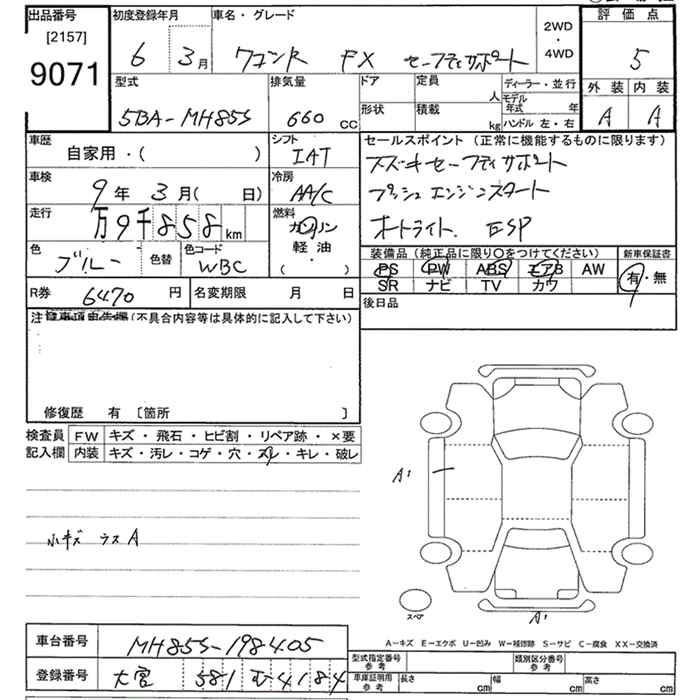 出品番号
[2157]
9071
初度登録年月
6 3月
車名・グレード
ワゴンR FX セーフティサポート
2WD
・
4WD
評価点
5
外装 内装
A A
型式
5BA-MH85S
排気量
660 CC
ドア
形状
定員 人
積載 kg
ディーラー・並行
モデル年式 年
ハンドル 左・右
車歴
自家用・( )
シフト
IAT
車検
9年 3月( 日)
冷房
AA/C
走行
万9千858km
燃料
ガソリン
軽油・
( )
色
ブルー
色替
色コード
WBC
セールスポイント (正常に機能するものに限ります)
スズキセーフティサポート
プッシュエンジンスタート
オートライト. ESP
装備品 (純正品に限り〇をつけてください)
PS PW ABS エアB AW
SR ナビ TV カワ
新車保証書
有・無
R券 6470 円
名変期限 月 日
後日品
注 (不具合内容等は具体的に記入して下さい)
修復歴 有 〔箇所 〕
検査員
記入欄
FW キズ・飛石・ヒビ割・リペア跡・×要
内装 キズ・汚レ・コゲ・穴・スレ・キレ・破レ
小キズ ラスA
A'
スペア
A'
A-キズ E-エクボ U-凹み W-補修跡 S-サビ C-腐食 XX-交換済
車台番号 MH85S-198405
登録番号 大宮 581 む 4184
型式指定番号
参考
類別区分番号
参考
車庫証明用
参考
長さ cm
幅 cm
高さ cm